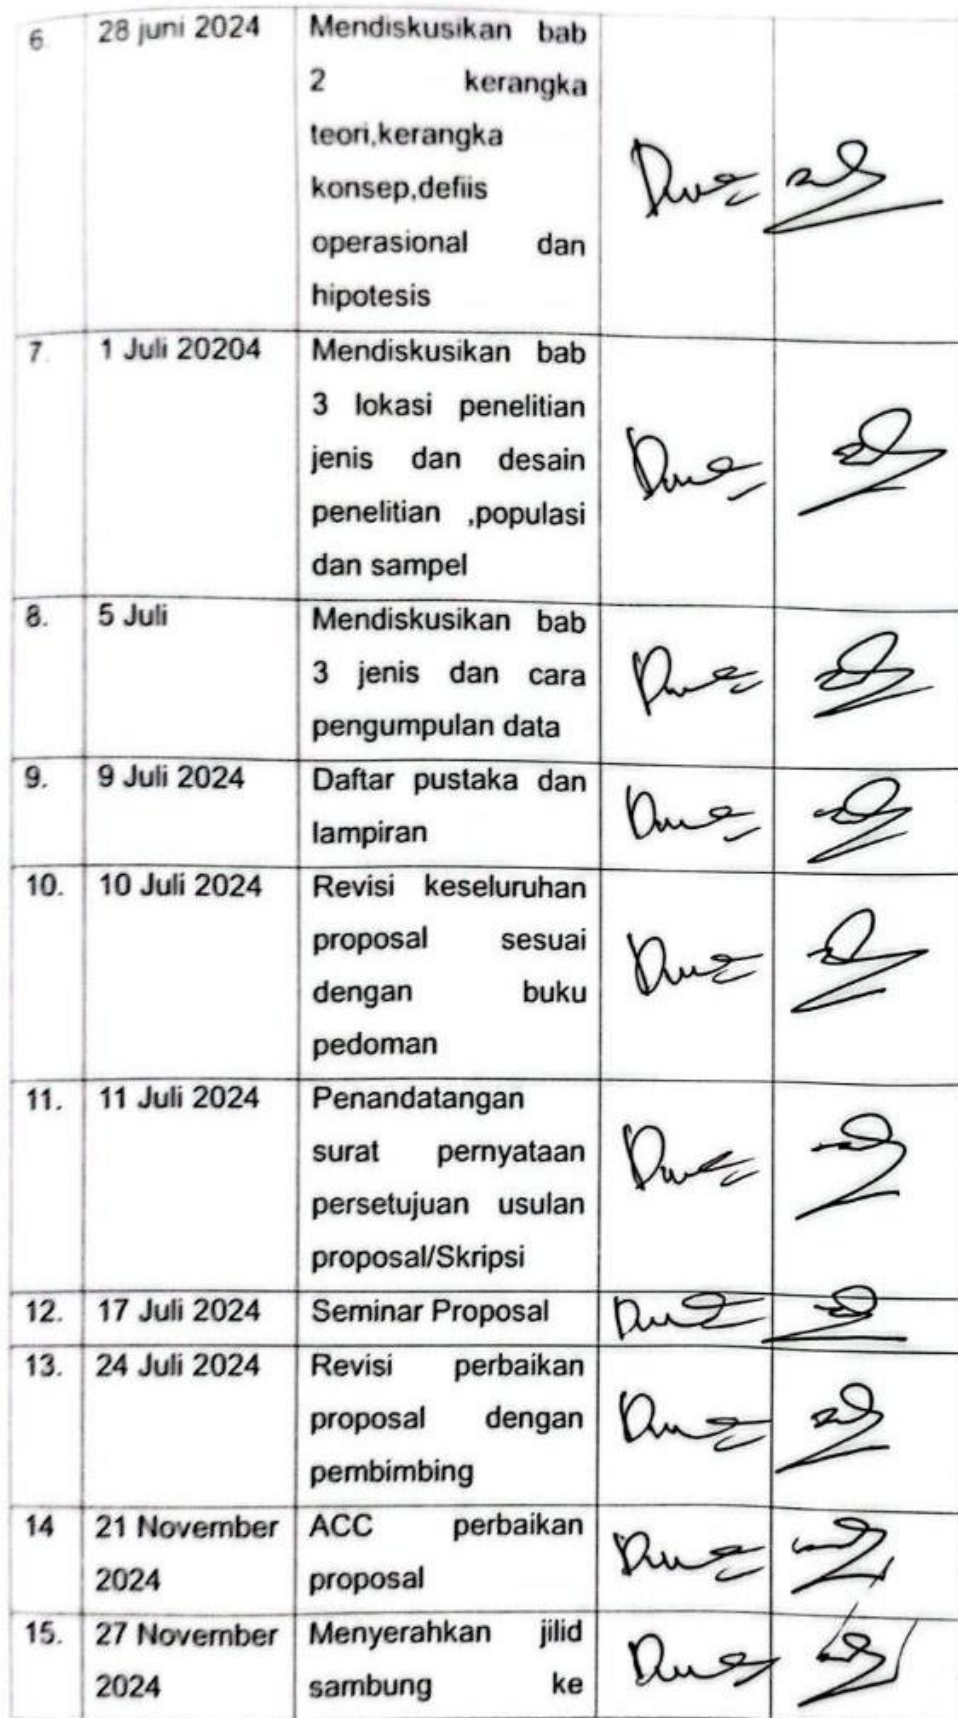 6. 28 juni 2024 Mendiskusikan bab
2 kerangka
teori,kerangka
konsep,defiis
operasional dan
hipotesis
7. 1 Juli 20204 Mendiskusikan bab
3 lokasi penelitian
jenis dan desain
penelitian ,populasi
dan sampel
8. 5 Juli Mendiskusikan bab
3 jenis dan cara
pengumpulan data
9. 9 Juli 2024 Daftar pustaka dan
lampiran
10. 10 Juli 2024 Revisi keseluruhan
proposal sesuai
dengan buku
pedoman
11. 11 Juli 2024 Penandatangan
surat pernyataan
persetujuan usulan
proposal/Skripsi
12. 17 Juli 2024 Seminar Proposal
13. 24 Juli 2024 Revisi perbaikan
proposal dengan
pembimbing
14 21 November ACC perbaikan
2024 proposal
15. 27 November Menyerahkan jilid
2024 sambung ke